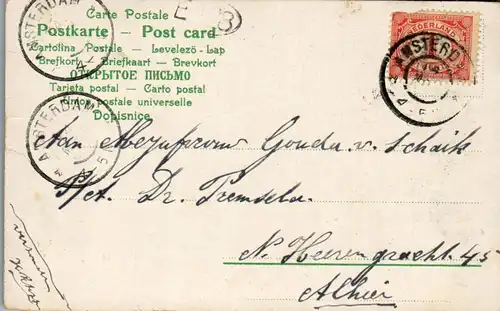 Carte Postale
Postkarte — Post card
Cartolina Postale — Levelező-Lap
Brefkort — Briefkaart — Brevkort
ОТКРЫТОЕ ПИСЬМО
Tarjeta postal — Carto postal
postale universelle
Dopisnice
AMSTERDAM
4
E
3
NEDERLAND
AMSTERD
4
AMSTERDAM
5
Aan Mejufvrouw Gouda v. Schaik
p/at. Dr. Tremsela.
N. Heerengracht. 45
Alhier